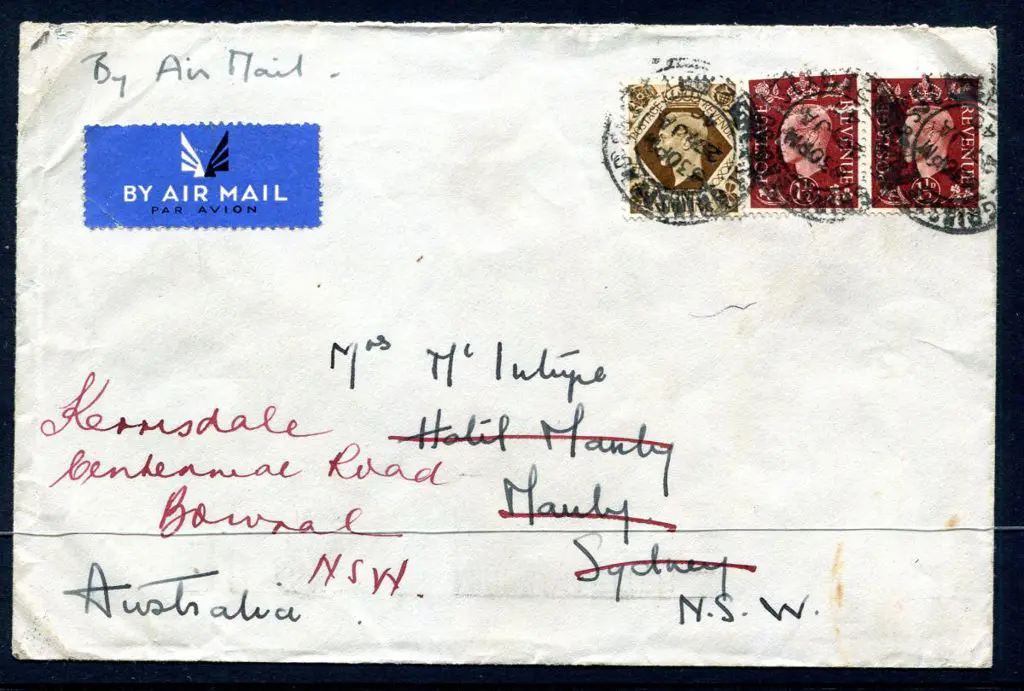 By Air Mail.
BY AIR MAIL
PAR AVION
POSTAGE
REVENUE
1½D
POSTAGE
REVENUE
1½D
Mrs Mc Intyre
Hotel Manly
Manly
Sydney
N.S.W.
Australia
Kerrisdale
Centennial Road
Bowral
NSW.